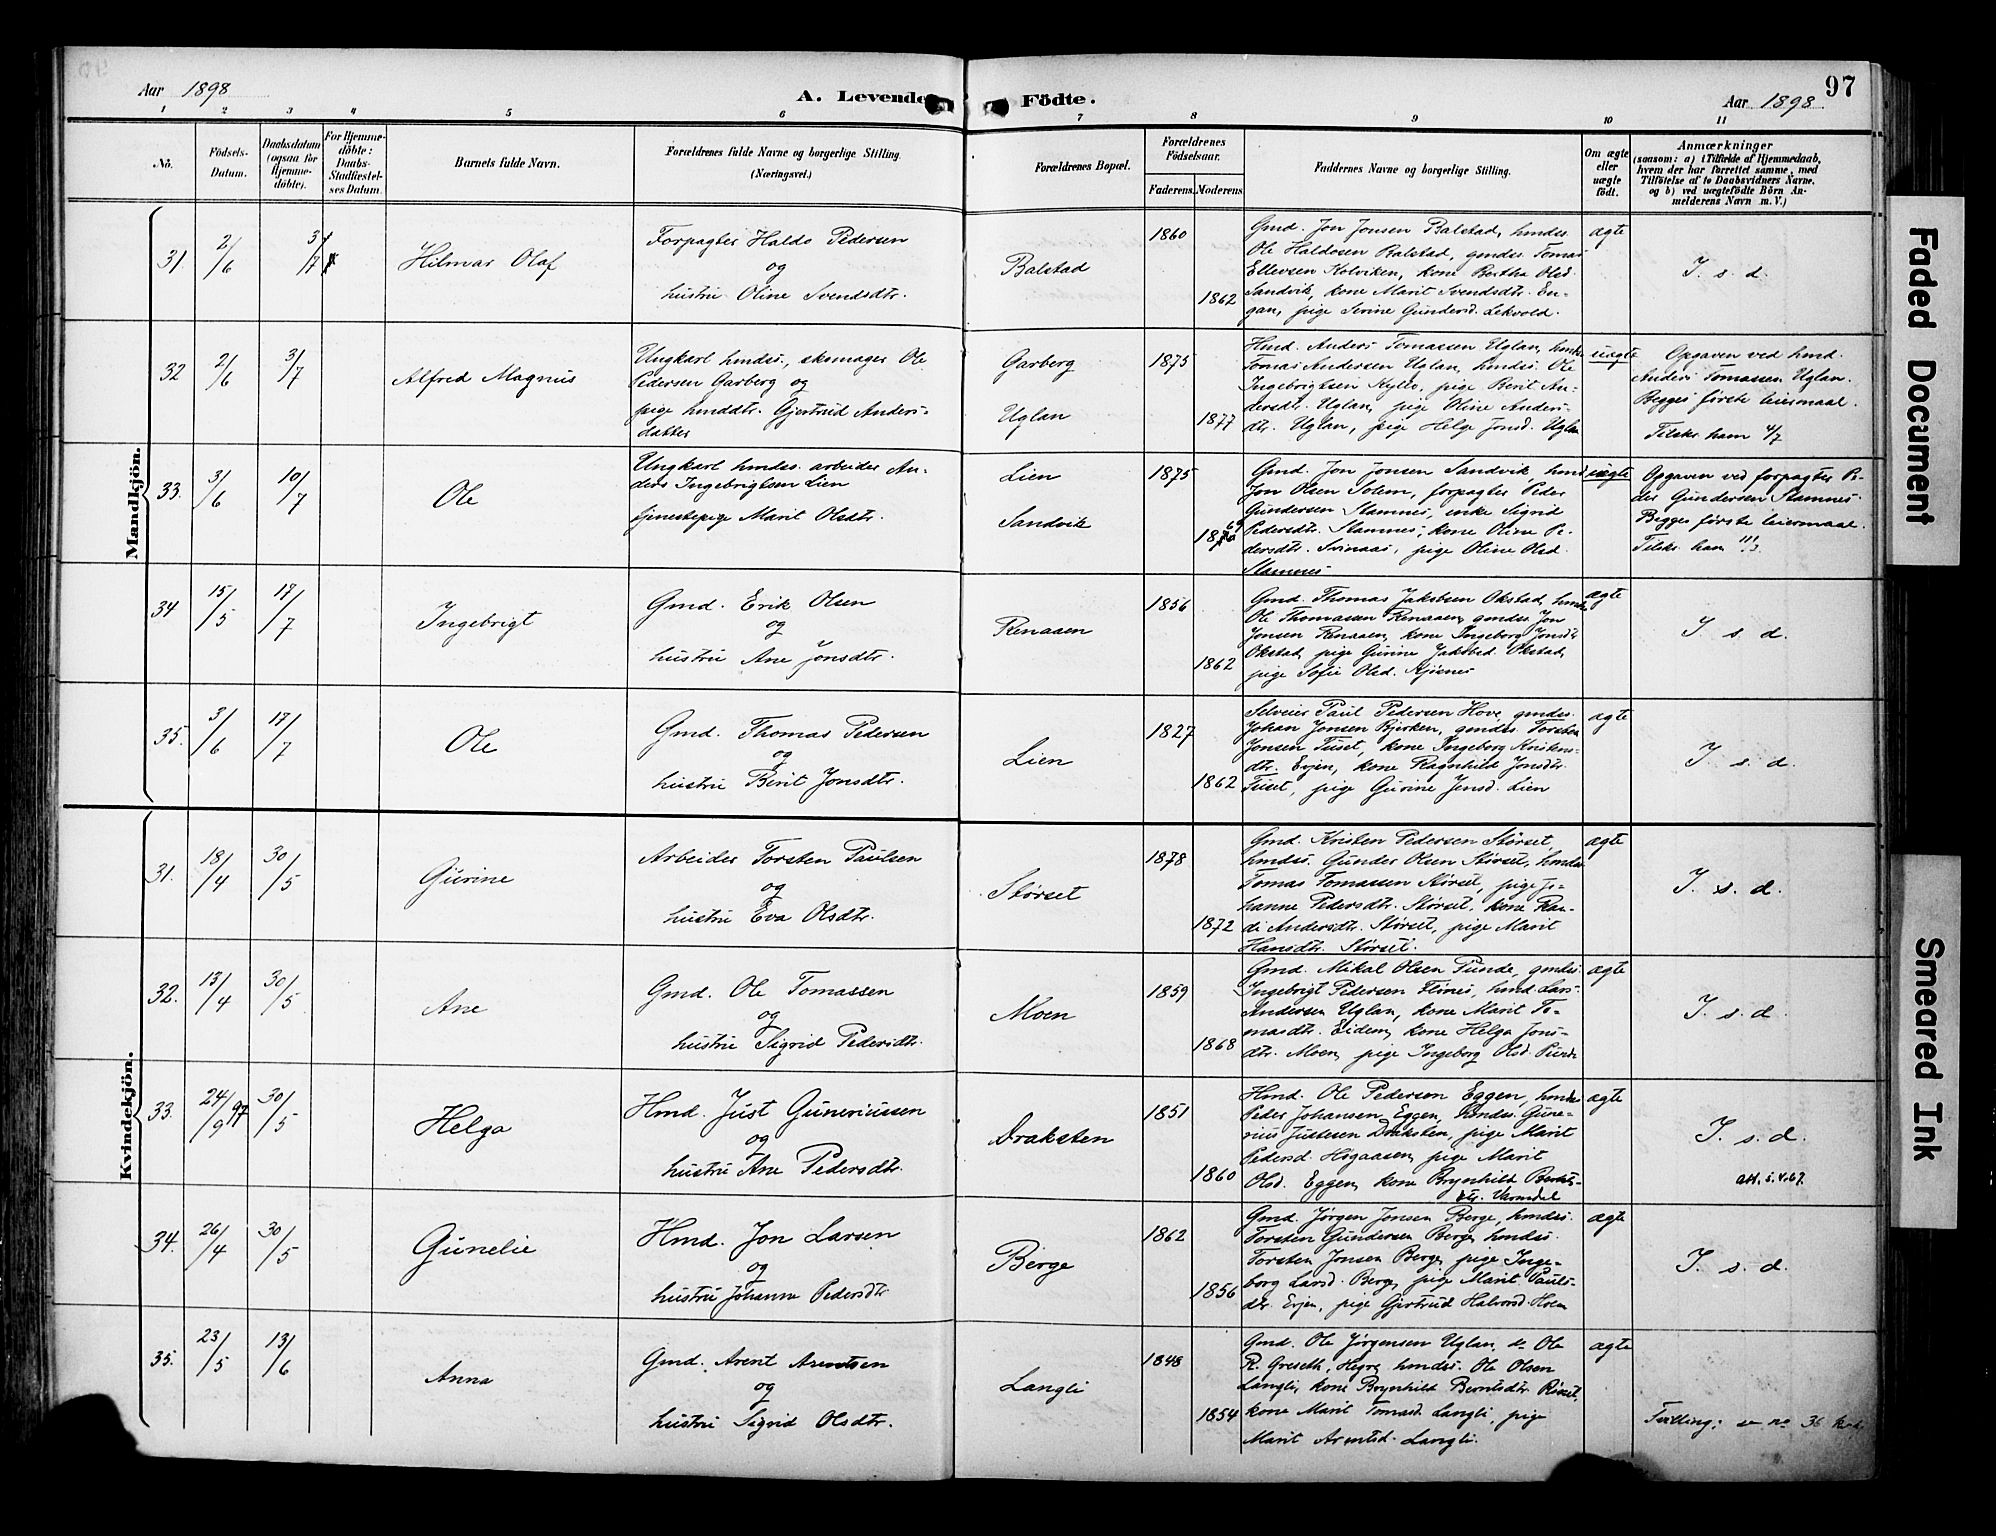 97
Aar 1898
A. Levende Födte.
Aar 1898.
1 2 3 4 5 6 7 8 9 10 11
No.
Födsels-
Datum.
Daabsdatum
(ogsaa for
Hjemme-
döbte).
For Hjemme-
döbte:
Daabs-
Stadfæstel-
ses Datum.
Barnets fulde Navn.
Forældrenes fulde Navne og borgerlige Stilling.
(Næringsvei.)
Forældrenes Bopæl.
Forældrenes
Födselsaar.
Faderens. Moderens.
Faddernes Navne og borgerlige Stilling.
Om ægte
eller
uægte
födt.
Anmærkninger
(saasom: a) i Tilfælde af Hjemmedaab,
hvem der har forrettet samme, med
Tilföielse af to Daabsvidners Navne,
og b) ved uægtefödte Börn An-
melderens Navn m. V.)
Mandkjön.
31.
2/6
3/7
Hilmar Olaf
Forpagter Haldo Pedersen
og
hustru Oline Svendsdtr.
Balstad
1860
1862
Gmd. Jon Jonsen Balstad, hmdss.
Ole Haldosen Balstad, gmdss. Tomas
Ellevsen Kolviken, kone Bertha Olsd.
Sandvik, kone Marit Svendsdtr. En-
gan, pige Serine Gundersd. Lekvold.
ægte
I. s. d.
32
2/6
3/7
Alfred Magnus
Ungkarl hmdss., skomager Ole
Pedersen Garberg og
pige hmddtr. Gjertrud Anders-
datter
Garberg
Uglan
1875
1877
Hmd. Anders Tomassen Uglan, hmdss.
Tomas Andersen Uglan, hmdss. Ole
Ingebrigtsen Kyllo, pige Berit An-
dersdtr. Uglan, pige Oline Anders-
dtr. Uglan, pige Helga Jonsd. Uglan
uægte
Opgaven ved hmd.
Anders Tomassen Uglan.
Begges første leiermaal.
Tilskr. ham 4/7
33.
3/6
10/7
Ole
Ungkarl hmdss. arbeider An-
ders Ingebrigtsen Lien
tjenestepige Marit Olsdtr.
Lien
Sandvik
1875
Gmd. Jon Jonsen Sandvik, hmd.
Jon Olsen Solem, forpagter Peder
Gundersen Stamnes, enke Sigrid
Pedersdtr. Stamnes, kone Oline Pe-
dersdtr. Svinaas, pige Oline Olsd.
Stamnes
uægte
Opgaven ved forpagter Pe-
der Gundersen Stamnes.
Begges første leiermaal.
Tilskr. ham
34
15/5
17/7
Ingebrigt
Gmd. Erik Olsen
og
hustru Ane Jonsdtr.
Renaaen
1856
1862
Gmd. Thomas Jakobsen Okstad, hmdss.
Ole Thomassen Renaaen, gmdss. Jon
Jonsen Renaaen, kone Ingeborg Jonsdtr.
Okstad, pige Gurine Jakobsd. Okstad,
pige Sofie Olsd. Kjøsnes
ægte
I s. d.
35.
3/6
17/7
Ole
Gmd. Thomas Pedersen
og
hustru Berit Jonsdtr.
Lien
1827
1862
Selveier Paul Pedersen Hove, gmdss.
Johan Jonsen Bjerken, gmdss. Torsten
Jonsen Tuset, kone Ingeborg Kristens-
dtr. Evjen, kone Ragnhild Jonsdtr.
Tuset, pige Gurine Jensd. Lien
ægte
I s. d.
Kvindekjön.
31.
18/4
30/5
Gurine
Arbeider Torsten Paulsen
og
hustru Eva Olsdtr.
Størset
1878
1872
Gmd. Kristen Pedersen Størset,
hmdss. Gunder Olsen Størset, hmdss.
Tomas Tomassen Størset, pige Jo-
hanne Pedersdtr. Størset, kone Ran-
di Andersdtr. Størset, pige Marit
Hansdtr. Størset.
ægte
I. s. d.
32.
13/4
30/5
Ane
Gmd. Ole Tomassen
og
hustru Sigrid Pedersdtr.
Moen
1859
1868
Gmd. Mikal Olsen Punde, gmdss.
Ingebrigt Pedersen Flines, hmd. Lars
Andersen Uglan, kone Marit To-
masdtr. Eidem, kone Helga Jons-
dtr. Moen, pige Ingeborg Olsd. Punde
ægte
I. s. d.
33.
24/9 97
30/5
Helga
Hmd. Just Guneriussen
og
hustru Ane Pedersdtr.
Draksten
1851
1860
Hmd. Ole Pedersen Eggen, hmdss.
Peder Johansen Eggen, hmdss. Gune-
rius Justesen Draksten, pige Marit
Pedersd. Høgaasen, pige Marit
Olsd. Eggen, kone Brynhild Bernts-
dtr. Varmdal
ægte
I. s. d.
att. 5.4.67.
34.
26/4
30/5
Gunelie
Hmd. Jon Larsen
og
hustru Johanne Pedersdtr
Berge
1862
1856
Gmd. Jørgen Jonsen Berge, hmdss.
Torsten Gundersen Berge, hmdss.
Torsten Jonsen Berge, pige Inge-
borg Larsd. Berge, pige Marit Pauls-
dtr. Evjen, pige Gjertrud Halvorsd. Hoem
ægte
I. s. d.
35.
23/5
13/6
Anna
Gmd. Arent Arentsen
og
hustru Sigrid Olsdtr.
Langli
1848
1854
Gmd. Ole Jørgensen Uglan, do Ole
R. Greseth, Hegre, hmdss. Ole Olsen
Langli, kone Brynhild Berntsdtr. Røset,
kone Marit Tomasd. Langli, pige
Marit Arentsd. Langli.
ægte
Tvilling: se no 36
Faded Document
Smeared Ink